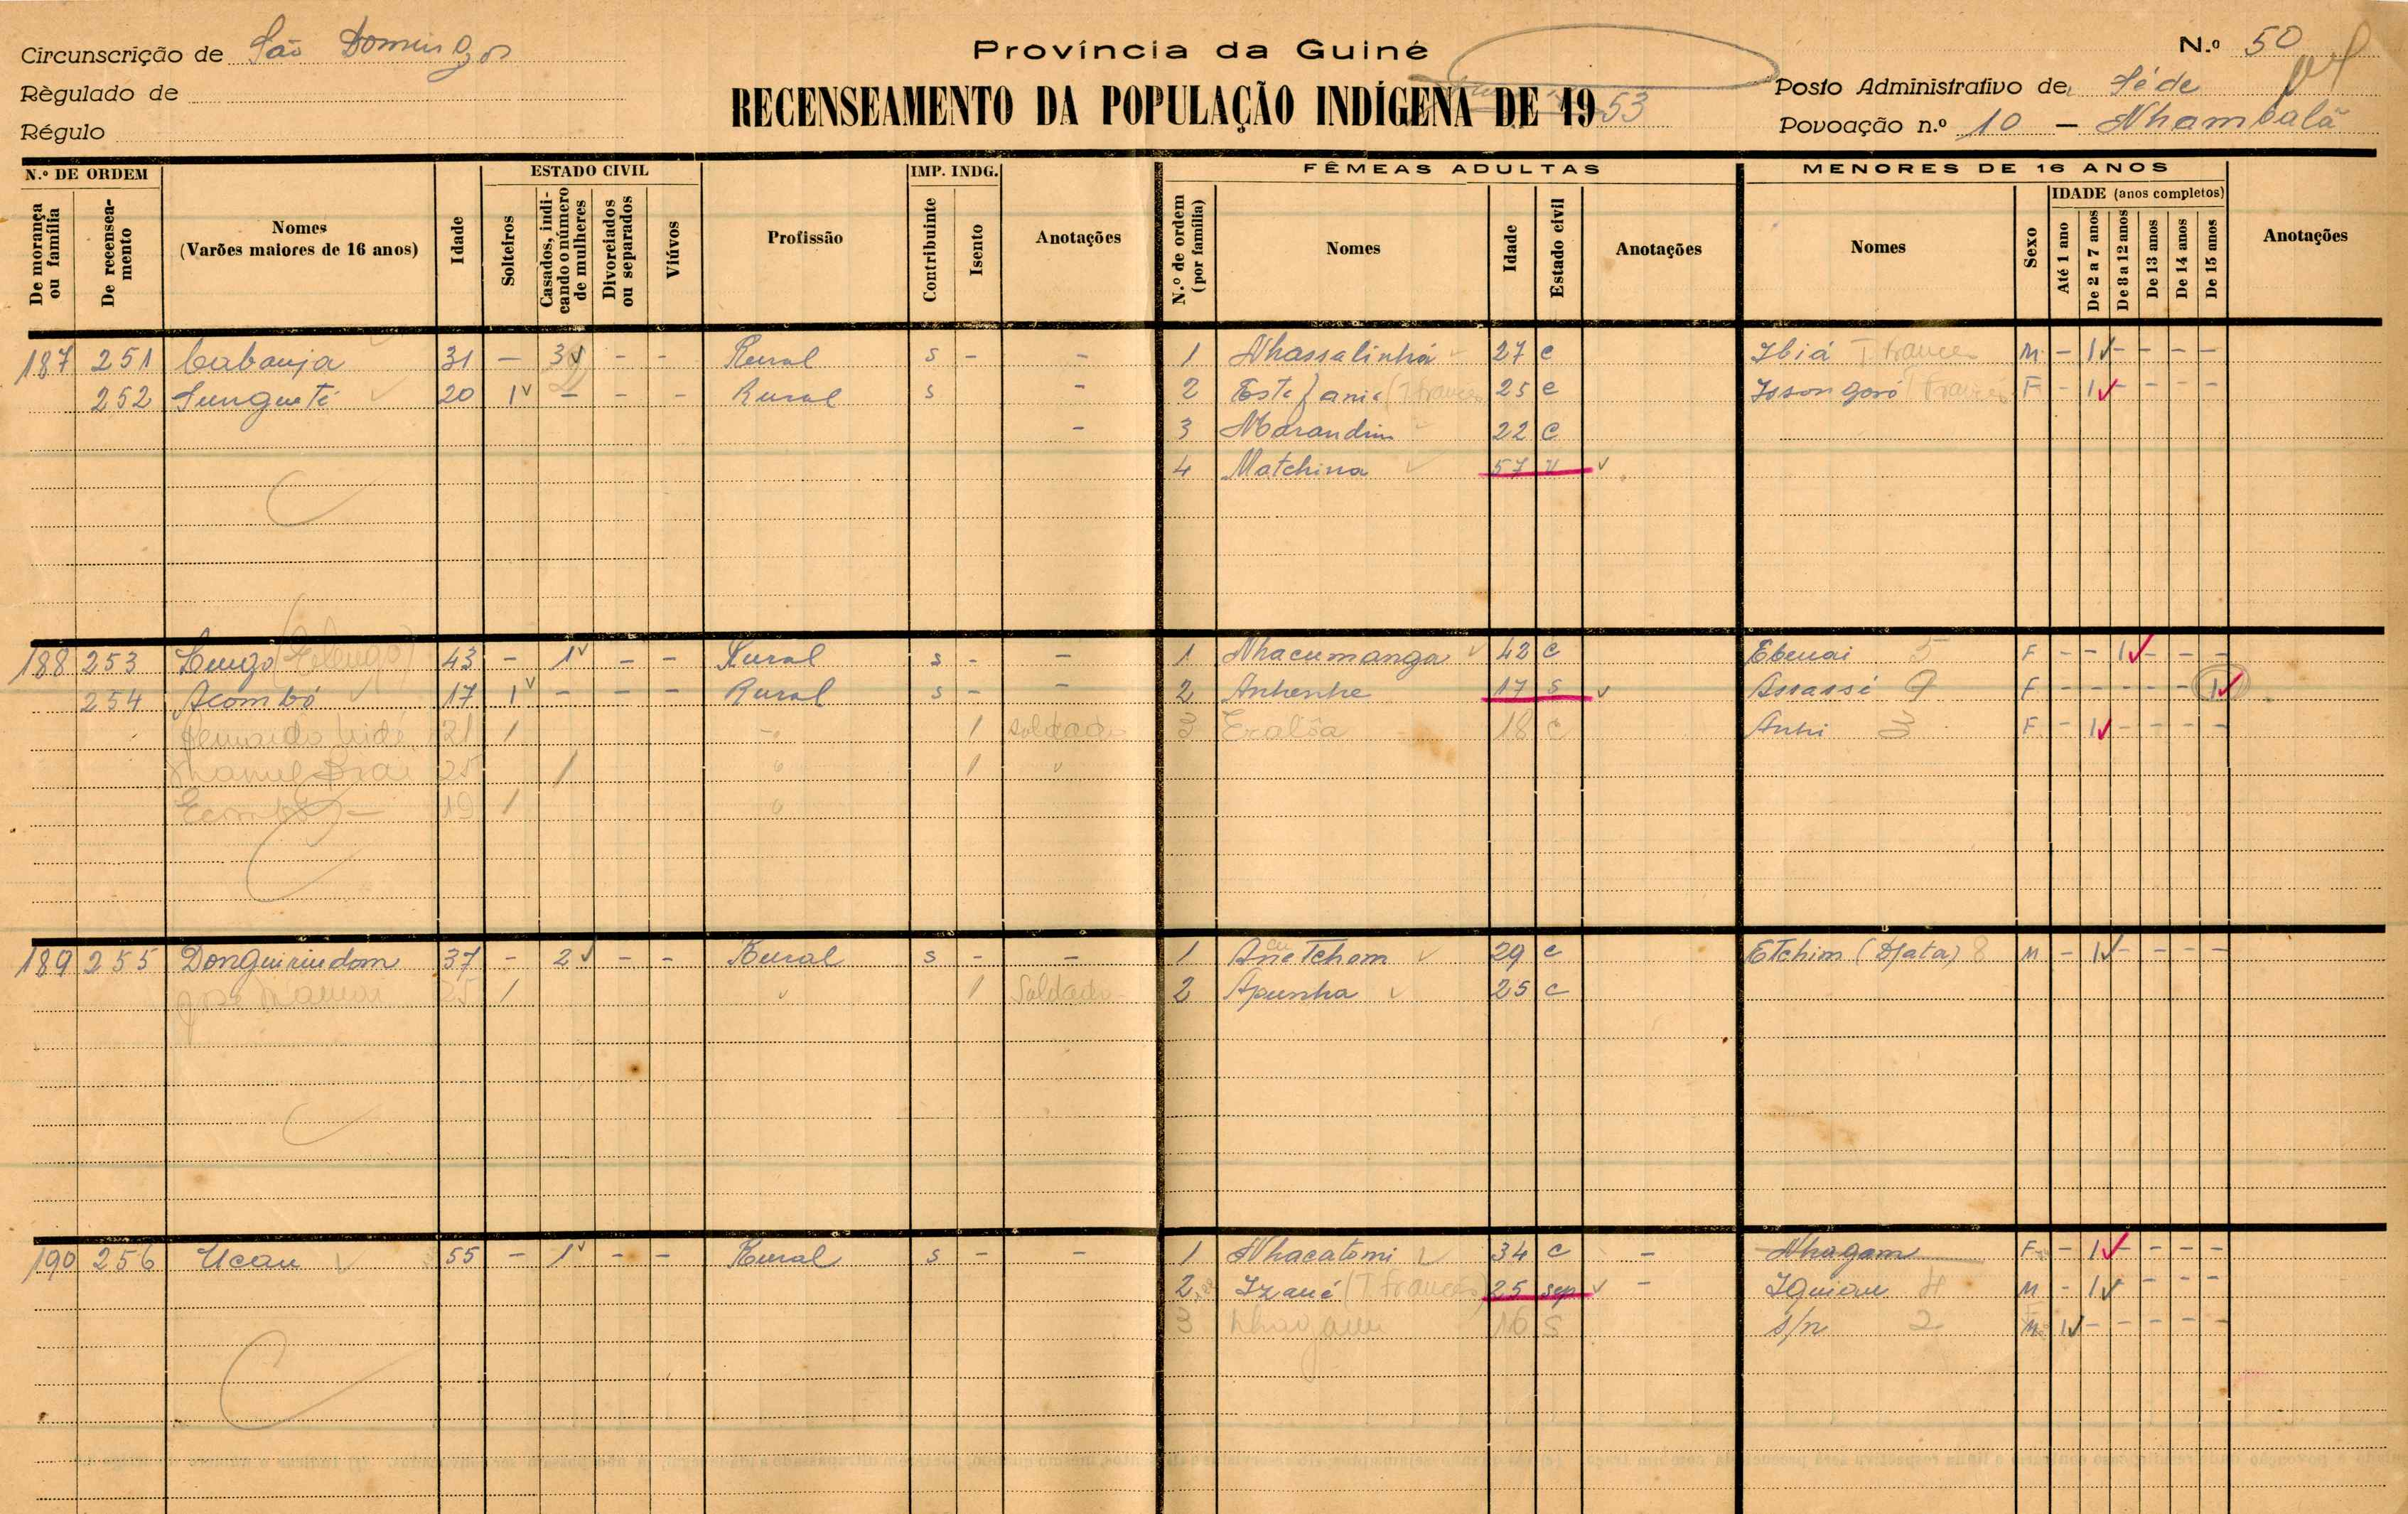 Circunscrição de São Domingos
Règulado de
Régulo
Província da Guiné
RECENSEAMENTO DA POPULAÇÃO INDÍGENA DE 1953
N.º 50
Posto Administrativo de Séde
Povoação n.º 10 – Nhambalã
N.º DE ORDEM
De morança ou família
De recenseamento
Nomes
(Varões maiores de 16 anos)
Idade
ESTADO CIVIL
Solteiros
Casados, indicando o número de mulheres
Divorciados ou separados
Viúvos
Profissão
IMP. INDG.
Contribuinte
Isento
Anotações
FÊMEAS ADULTAS
N.º de ordem (por família)
Nomes
Idade
Estado civil
Anotações
MENORES DE 16 ANOS
Nomes
Sexo
IDADE (anos completos)
Até 1 ano
De 2 a 7 anos
De 8 a 12 anos
De 13 anos
De 14 anos
De 15 anos
Anotações
187 251 Cabanja 31 – 3 – – Rural s – – 1 Nhassalinhá 27 c Ibiá T. frances M – 1 – – – –
252 Sungueté 20 1 – – – Rural s – 2 Estefania (T. frances) 25 c Issongoró T. frances F – 1 – – – –
– 3 Marandim 22 c
4 Matchina 57 v
188 253 Lengo 43 – 1 – – Rural s – – 1 Nhacumanga 42 c Ebenai 5 F – – 1 – – –
254 Acombó 17 1 – – – Rural s – – 2 Anhenhe 17 s Assassé F – – – – – 1
21 1 1 Soldado 3 Eralôa 18 c Anhi 3 F – 1 – – – –
Manuel 25 1 1
19 1
189 255 Donguirindom 37 – 2 – – Rural s – – 1 Anatcham 29 c Etchim (Djata) 8 M – 1 – – – –
25 1 1 Soldado 2 Apunha 25 c
190 256 Ucau 55 – 1 – – Rural s – – 1 Nhacatomi 34 c – Nhagam F – 1 – – – –
2 Izaué (T. frances) 25 sep – Iguiau 4 M – 1 – – –
3 Nhagam 16 s s/n 2 M 1 – – – – –